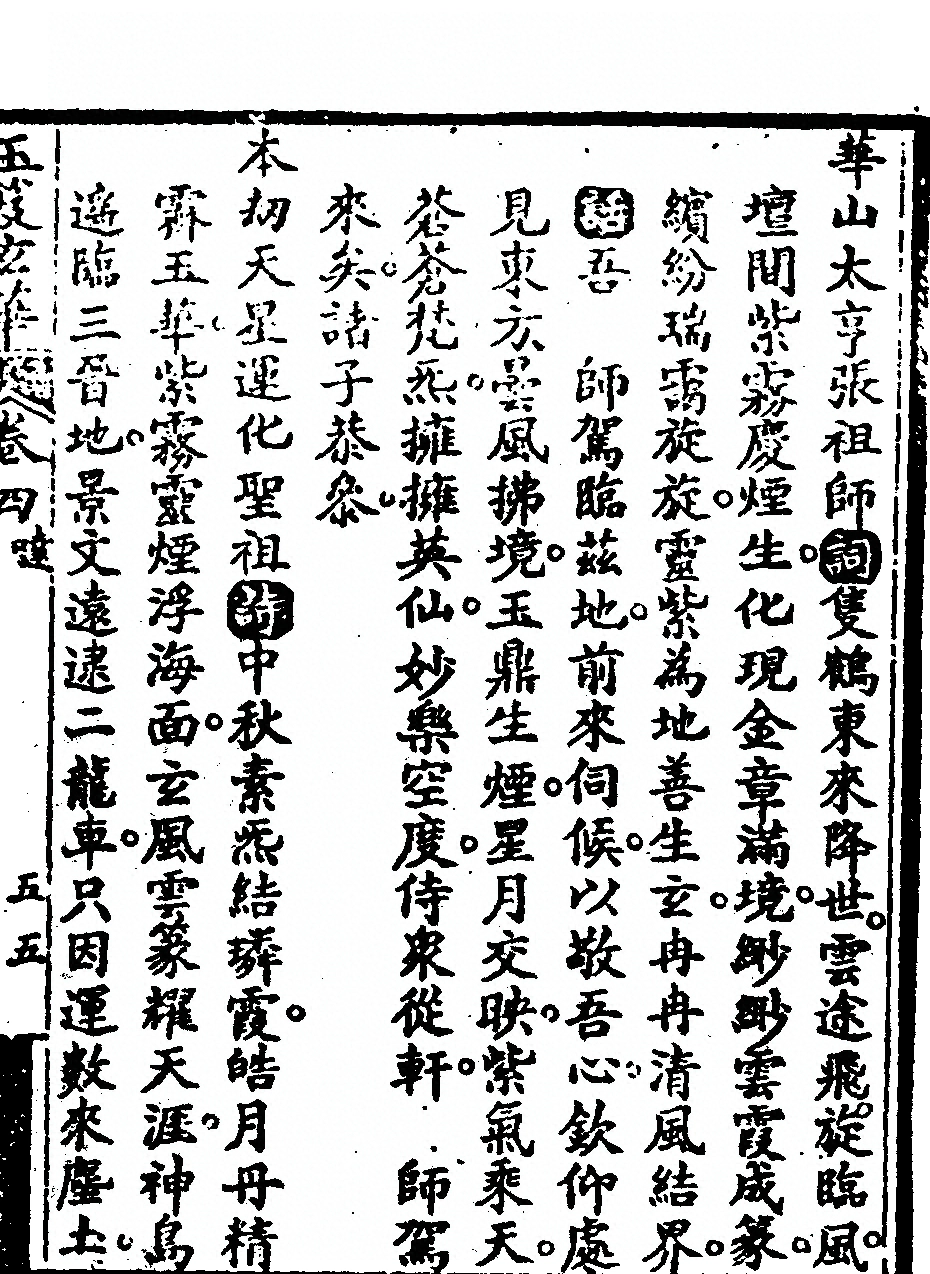 華山太亨張祖師詞隻鶴東來降世。雲途飛旋臨風。
壇間紫霧慶煙生。化現金章滿境。緲緲雲霞成篆。
繽紛瑞靄旋旋。靈紫為地善生玄。冉冉清風結界。
話吾 師駕臨茲地。前來伺候。以敬吾心。欽仰處
見東方曇風拂境。玉鼎生煙。星月交映。紫氣乘天。
蒼蒼梵炁。擁擁英仙。妙樂空度。侍衆從軒。 師駕
來矣。諸子恭叅。
本劫天星運化聖祖詩中秋素炁結璘霞。皓月丹精
霹玉華。紫霧靈煙浮海面。玄風雲篆耀天涯。神鳥
遙臨三晉地。景文遠逮二龍車。只因運數來塵土。
玉笈玄華 卷四 五五